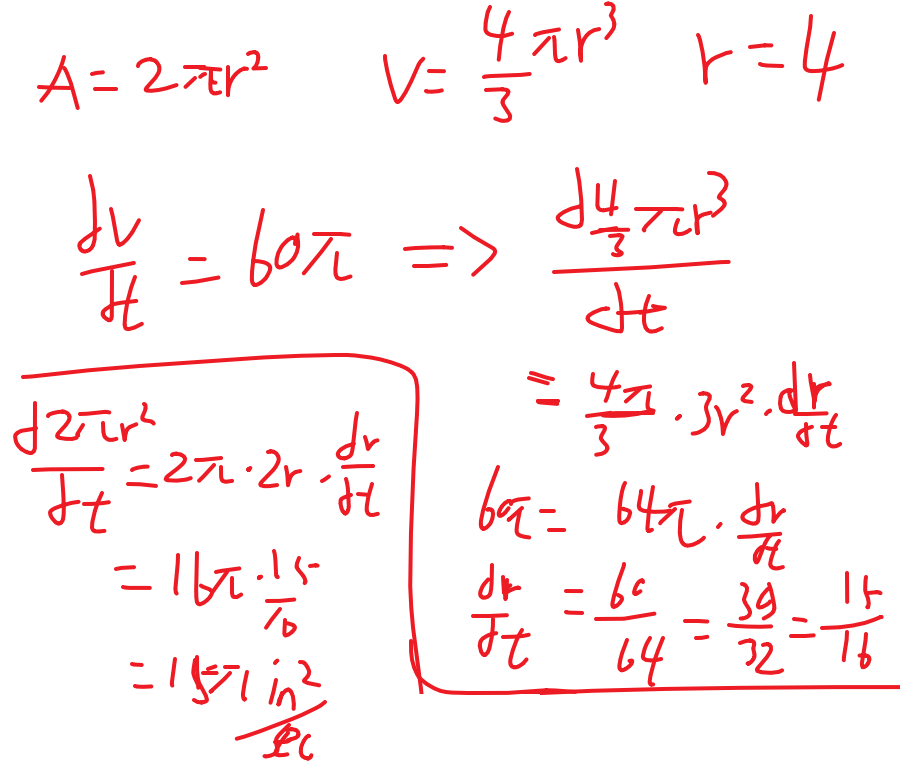 A = 2πr² V = 4/3 πr³ r = 4
dv/dt = 60π => d 4/3 πr³ / dt
= 4π/3 · 3r² · dr/dt
60π = 64π · dr/dt
dr/dt = 60/64 = 30/32 = 15/16
d2πr²/dt = 2π · 2r · dr/dt
= 16π · 15/16
= 15π in²/sec